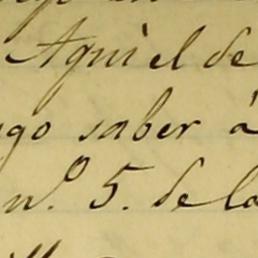 Aqui el de
go saber á
n.º 5. de la